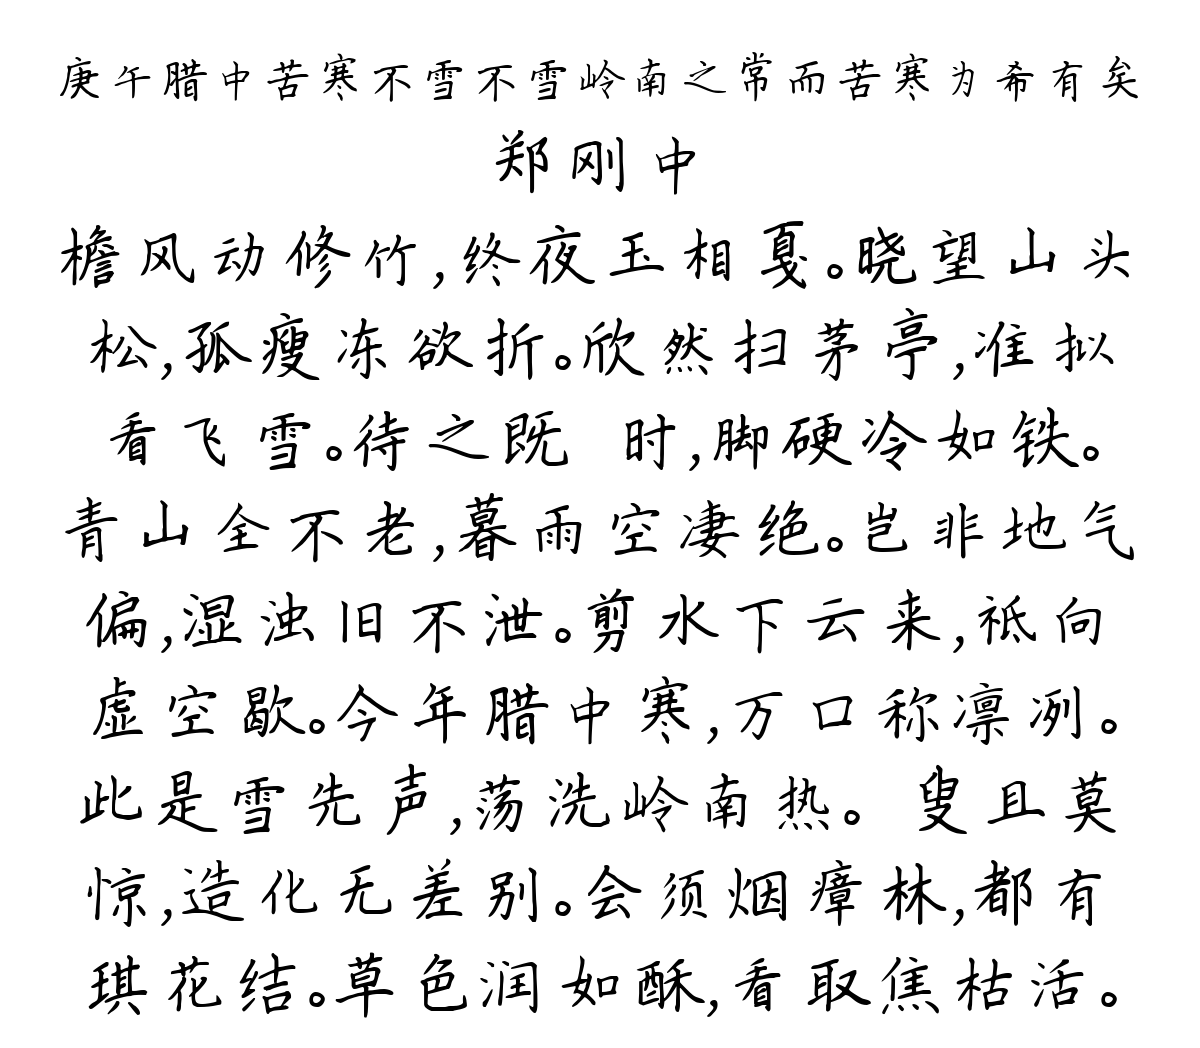 庚午腊中苦寒不雪不雪岭南之常而苦寒为希有矣
郑刚中
檐风动修竹,终夜玉相戛。晓望山头
松,孤瘦冻欲折。欣然扫茅亭,准拟
看飞雪。待之既 时,脚硬冷如铁。
青山全不老,暮雨空凄绝。岂非地气
偏,湿浊旧不泄。剪水下云来,祗向
虚空歇。今年腊中寒,万口称凛冽。
此是雪先声,荡洗岭南热。 叟且莫
惊,造化无差别。会须烟瘴林,都有
琪花结。草色润如酥,看取焦枯活。